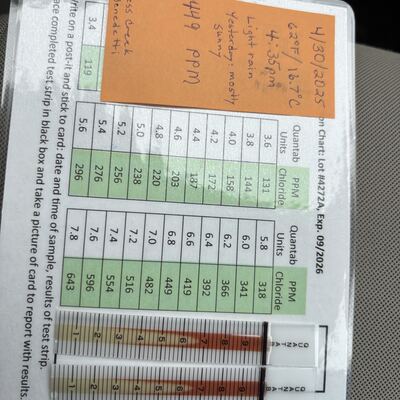 on Chart: Lot #4272A, Exp. 09/2026
4/30/2025
62°F/16.7°C
4:35pm
Light rain
Yesterday: mostly
sunny
449 PPM
oss Creek
Benedetti
3.4 119
Quantab Units PPM Chloride
3.6 131
3.8 144
4.0 158
4.2 172
4.4 187
4.6 203
4.8 220
5.0 238
5.2 256
5.4 276
5.6 296
Quantab Units PPM Chloride
5.8 318
6.0 341
6.2 366
6.4 392
6.6 419
6.8 449
7.0 482
7.2 516
7.4 554
7.6 596
7.8 643
QUANTAB
9
8
7
6
5
4
3
2
1
QUANTAB
9
8
7
6
5
4
3
2
1
Write on a post-it and stick to card: date and time of sample, results of test strip.
ace completed test strip in black box and take a picture of card to report with results.